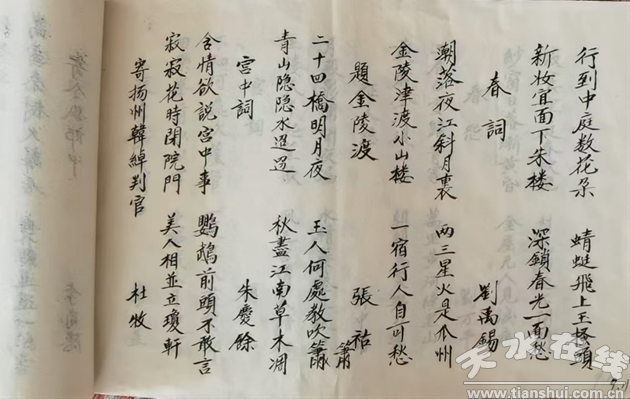 寄扬州韓綽判官 杜牧
寂寂花時閉院門 美人相並立瓊軒
含情欲説宫中事 鹦鹉前頭不敢言
宫中詞 朱慶餘
青山隐隐水迢迢 秋盡江南草木凋
二十四橋明月夜 玉人何處教吹簫
簫
題金陵渡 張祜
金陵津渡小山楼 一宿行人自可愁
潮落夜江斜月裏 两三星火是瓜州
春詞 劉禹錫
新妆宜面下朱楼 深鎖春光一面愁
行到中庭数花朵 蜻蜓飛上玉搔頭
天水在线
www.tianshui.com.cn